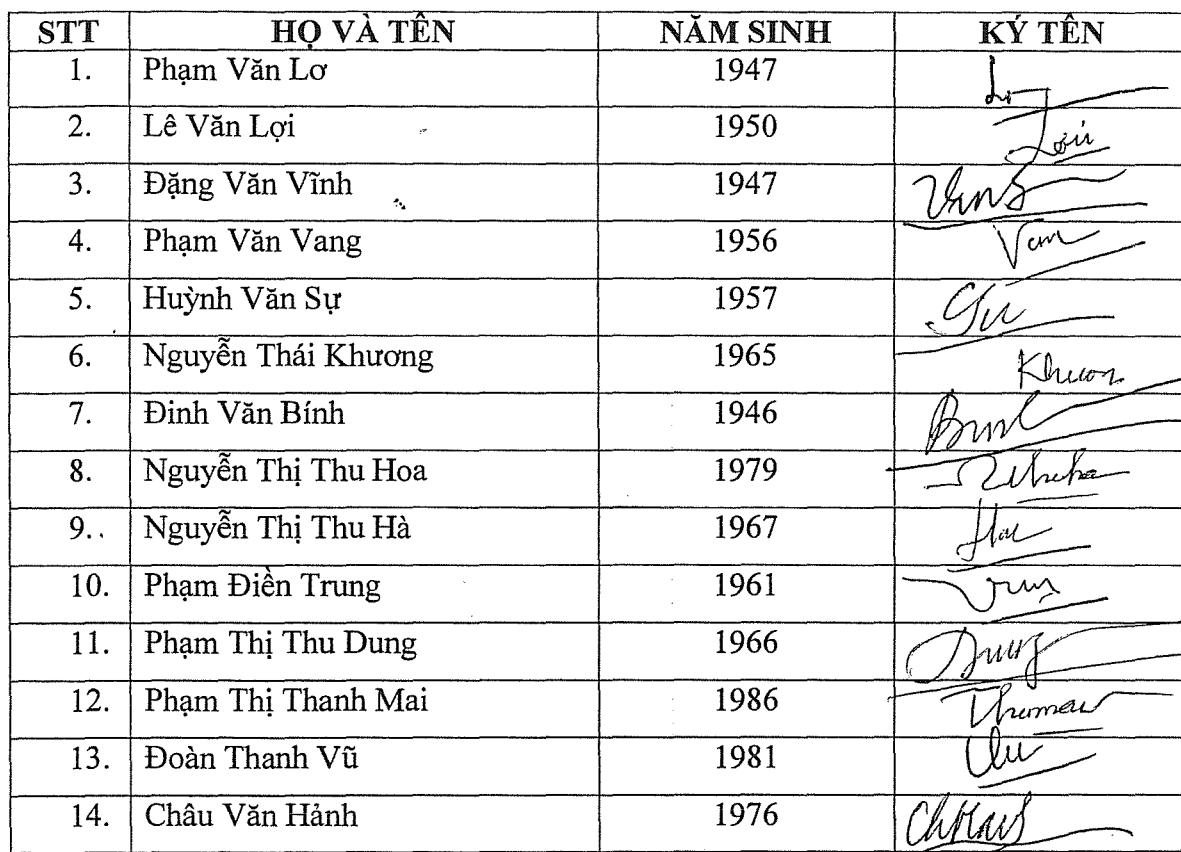 STT HỌ VÀ TÊN NĂM SINH KÝ TÊN
1. Phạm Văn Lơ 1947
2. Lê Văn Lợi 1950
3. Đặng Văn Vĩnh 1947
4. Phạm Văn Vang 1956
5. Huỳnh Văn Sự 1957
6. Nguyễn Thái Khương 1965
7. Đinh Văn Bính 1946
8. Nguyễn Thị Thu Hoa 1979
9. Nguyễn Thị Thu Hà 1967
10. Phạm Điền Trung 1961
11. Phạm Thị Thu Dung 1966
12. Phạm Thị Thanh Mai 1986
13. Đoàn Thanh Vũ 1981
14. Châu Văn Hảnh 1976